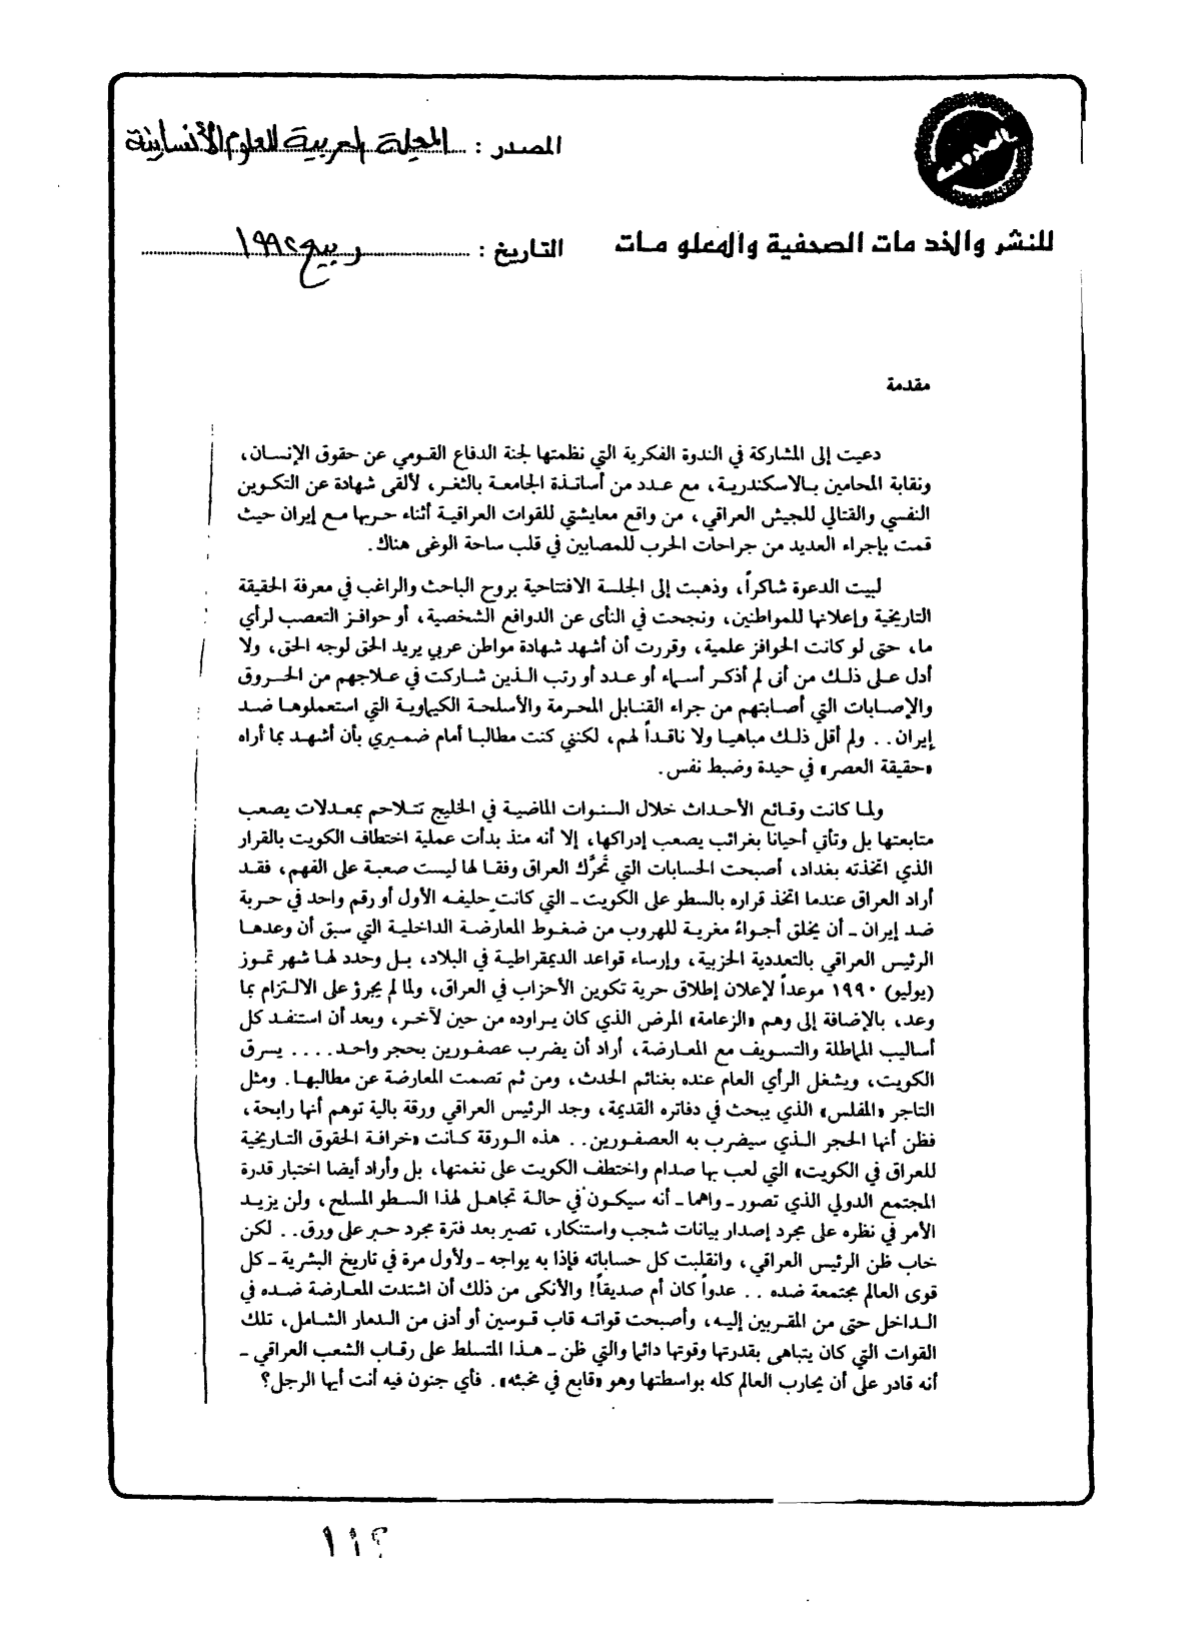 المصدر : المجلة العربية للعلوم الأنسانية
للنشر والخدمات الصحفية والمعلومات
التاريخ : ربيع ١٩٩٢
مقدمة
دعيت إلى المشاركة في الندوة الفكرية التي نظمتها لجنة الدفاع القومي عن حقوق الإنسان،
ونقابة المحامين بالاسكندرية، مع عدد من أساتذة الجامعة بالثغر، لألقى شهادة عن التكوين
النفسي والقتالي للجيش العراقي، من واقع معايشتي للقوات العراقية أثناء حربها مع إيران حيث
قمت بإجراء العديد من جراحات الحرب للمصابين في قلب ساحة الوغى هناك.
لبيت الدعوة شاكراً، وذهبت إلى الجلسة الافتتاحية بروح الباحث والراغب في معرفة الحقيقة
التاريخية وإعلانها للمواطنين، ونجحت في النأى عن الدوافع الشخصية، أو حوافز التعصب لرأي
ما، حتى لو كانت الحوافز علمية، وقررت أن أشهد شهادة مواطن عربي يريد الحق لوجه الحق، ولا
أدل على ذلك من أنى لم أذكر أسماء أو عدد أو رتب الذين شاركت في علاجهم من الحروق
والإصابات التي أصابتهم من جراء القنابل المحرمة والأسلحة الكيماوية التي استعملوها ضد
إيران.. ولم أقل ذلك مباهيا ولا ناقداً لهم، لكنني كنت مطالبا أمام ضميري بأن أشهد بما أراه
«حقيقة العصر» في حيدة وضبط نفس.
ولما كانت وقائع الأحداث خلال السنوات الماضية في الخليج تتلاحم بمعدلات يصعب
متابعتها بل وتأتي أحيانا بغرائب يصعب إدراكها، إلا أنه منذ بدأت عملية اختطاف الكويت بالقرار
الذي اتخذته بغداد، أصبحت الحسابات التي تُحرَّك العراق وفقا لها ليست صعبة على الفهم، فقد
أراد العراق عندما اتخذ قراره بالسطو على الكويت ـ التي كانت حليفه الأول أو رقم واحد في حربة
ضد إيران ـ أن يخلق أجواءً مغرية للهروب من ضغوط المعارضة الداخلية التي سبق أن وعدها
الرئيس العراقي بالتعددية الحزبية، وإرساء قواعد الديمقراطية في البلاد، بل وحدد لها شهر تموز
(يوليو) ١٩٩٠ موعداً لإعلان إطلاق حرية تكوين الأحزاب في العراق، ولما لم يجرؤ على الالتزام بما
وعد، بالإضافة إلى وهم «الزعامة» المرض الذي كان يراوده من حين لآخر، وبعد أن استنفد كل
أساليب المماطلة والتسويف مع المعارضة، أراد أن يضرب عصفورين بحجر واحد.... يسرق
الكويت، ويشغل الرأي العام عنده بغنائم الحدث، ومن ثم تصمت المعارضة عن مطالبها. ومثل
التاجر «المفلس» الذي يبحث في دفاتره القديمة، وجد الرئيس العراقي ورقة بالية توهم أنها رابحة،
فظن أنها الحجر الذي سيضرب به العصفورين.. هذه الورقة كانت «خرافة الحقوق التاريخية
للعراق في الكويت» التي لعب بها صدام واختطف الكويت على نغمتها، بل وأراد أيضا اختبار قدرة
المجتمع الدولي الذي تصور ـ واهما ـ أنه سيكون في حالة تجاهل لهذا السطو المسلح، ولن يزيد
الأمر في نظره على مجرد إصدار بيانات شجب واستنكار، تصير بعد فترة مجرد حبر على ورق.. لكن
خاب ظن الرئيس العراقي، وانقلبت كل حساباته فإذا به يواجه ـ ولأول مرة في تاريخ البشرية ـ كل
قوى العالم مجتمعة ضده .. عدواً كان أم صديقاً! والأنكى من ذلك أن اشتدت المعارضة ضده في
الداخل حتى من المقربين إليه، وأصبحت قواته قاب قوسين أو أدنى من الدمار الشامل، تلك
القوات التي كان يتباهى بقدرتها وقوتها دائما والتي ظن ـ هذا المتسلط على رقاب الشعب العراقي ـ
أنه قادر على أن يحارب العالم كله بواسطتها وهو «قابع في مخبئه». فأي جنون فيه أنت أيها الرجل؟